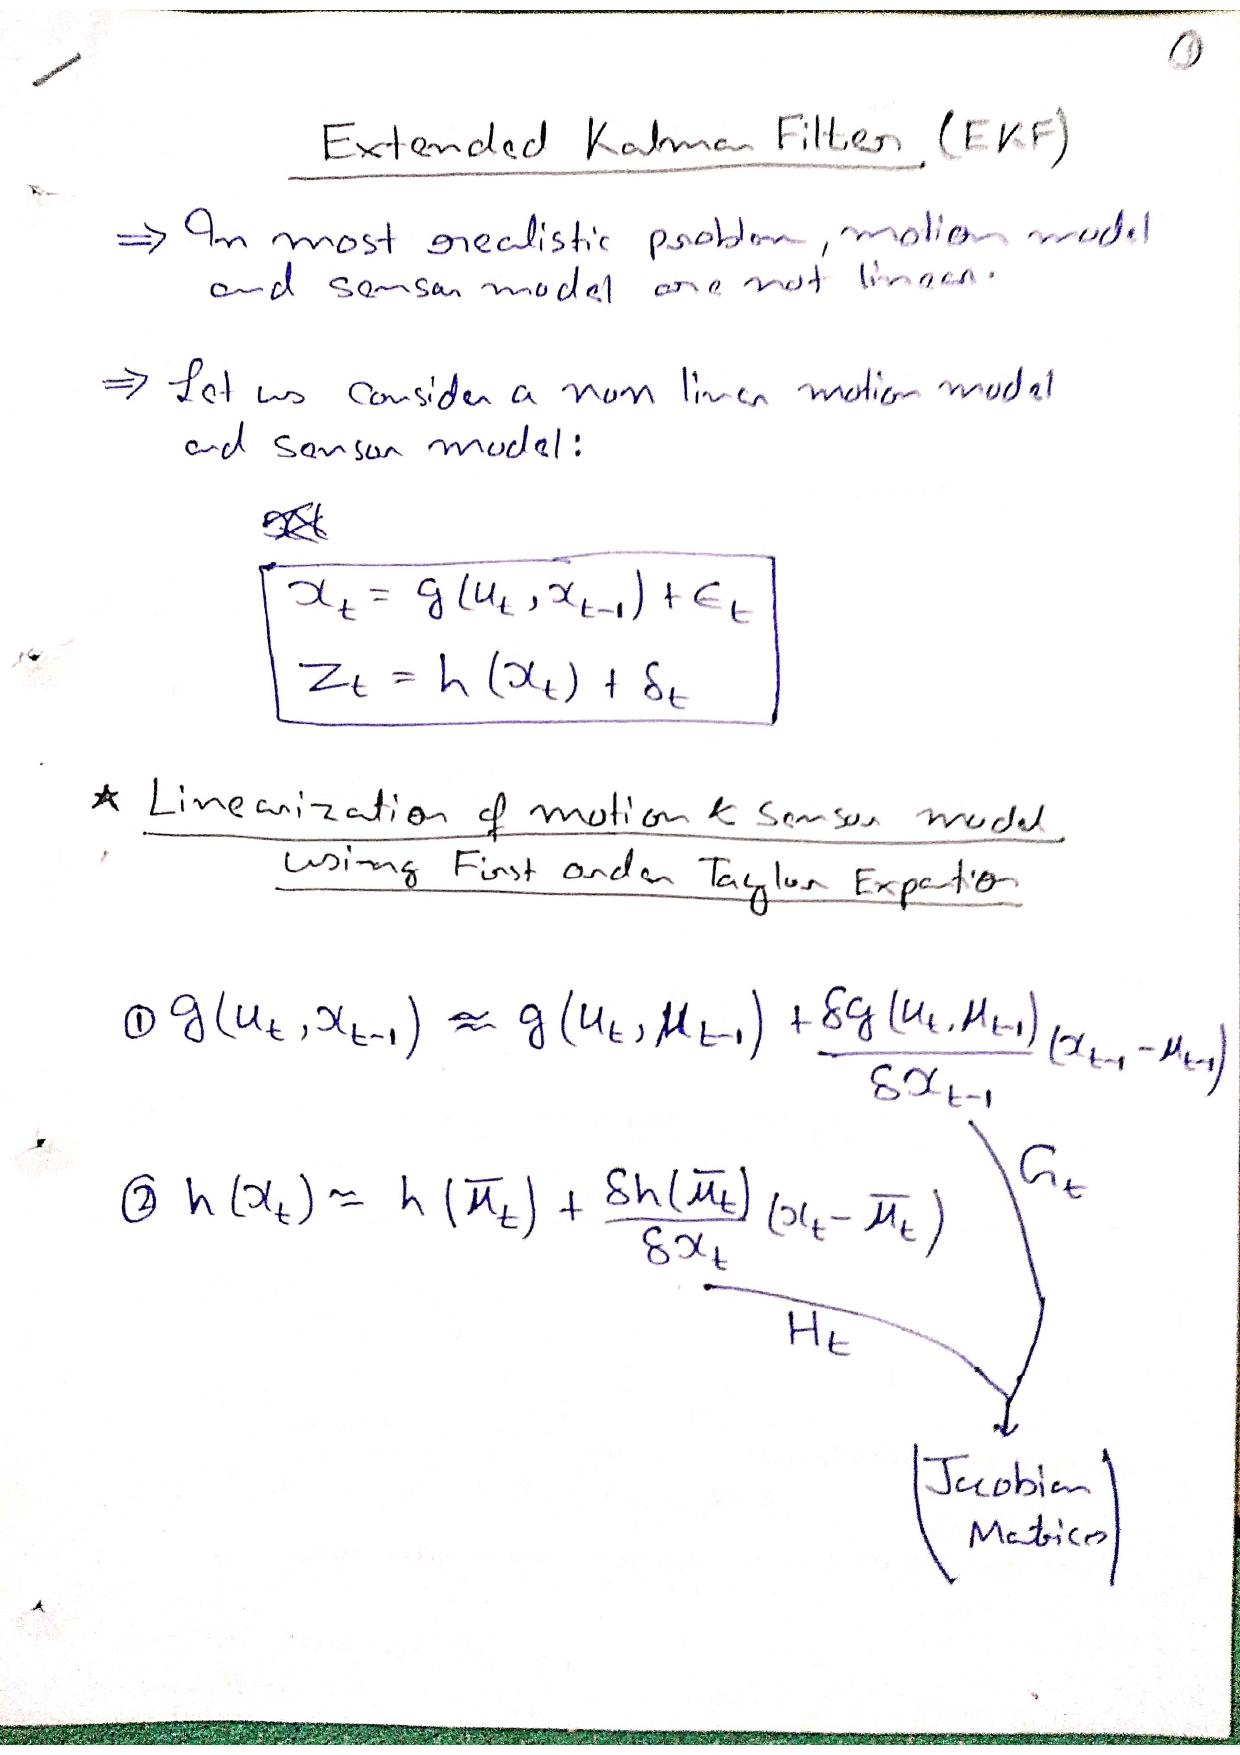 1
Extended Kalman Filter (EKF)
⇒ In most realistic problem, motion model
and sensor model are not linear.
⇒ Let us consider a non linear motion model
and sensor model:
x_t = g(u_t, x_{t-1}) + ϵ_t
z_t = h(x_t) + δ_t
* Linearization of motion & sensor model
using First order Taylor Expantion
① g(u_t, x_{t-1}) ≈ g(u_t, μ_{t-1}) + δg(u_t, μ_{t-1})/δx_{t-1} (x_{t-1} - μ_{t-1})
G_t
② h(x_t) ≈ h(μ̄_t) + δh(μ̄_t)/δx_t (x_t - μ̄_t)
H_t
(Jacobian
Matrices)